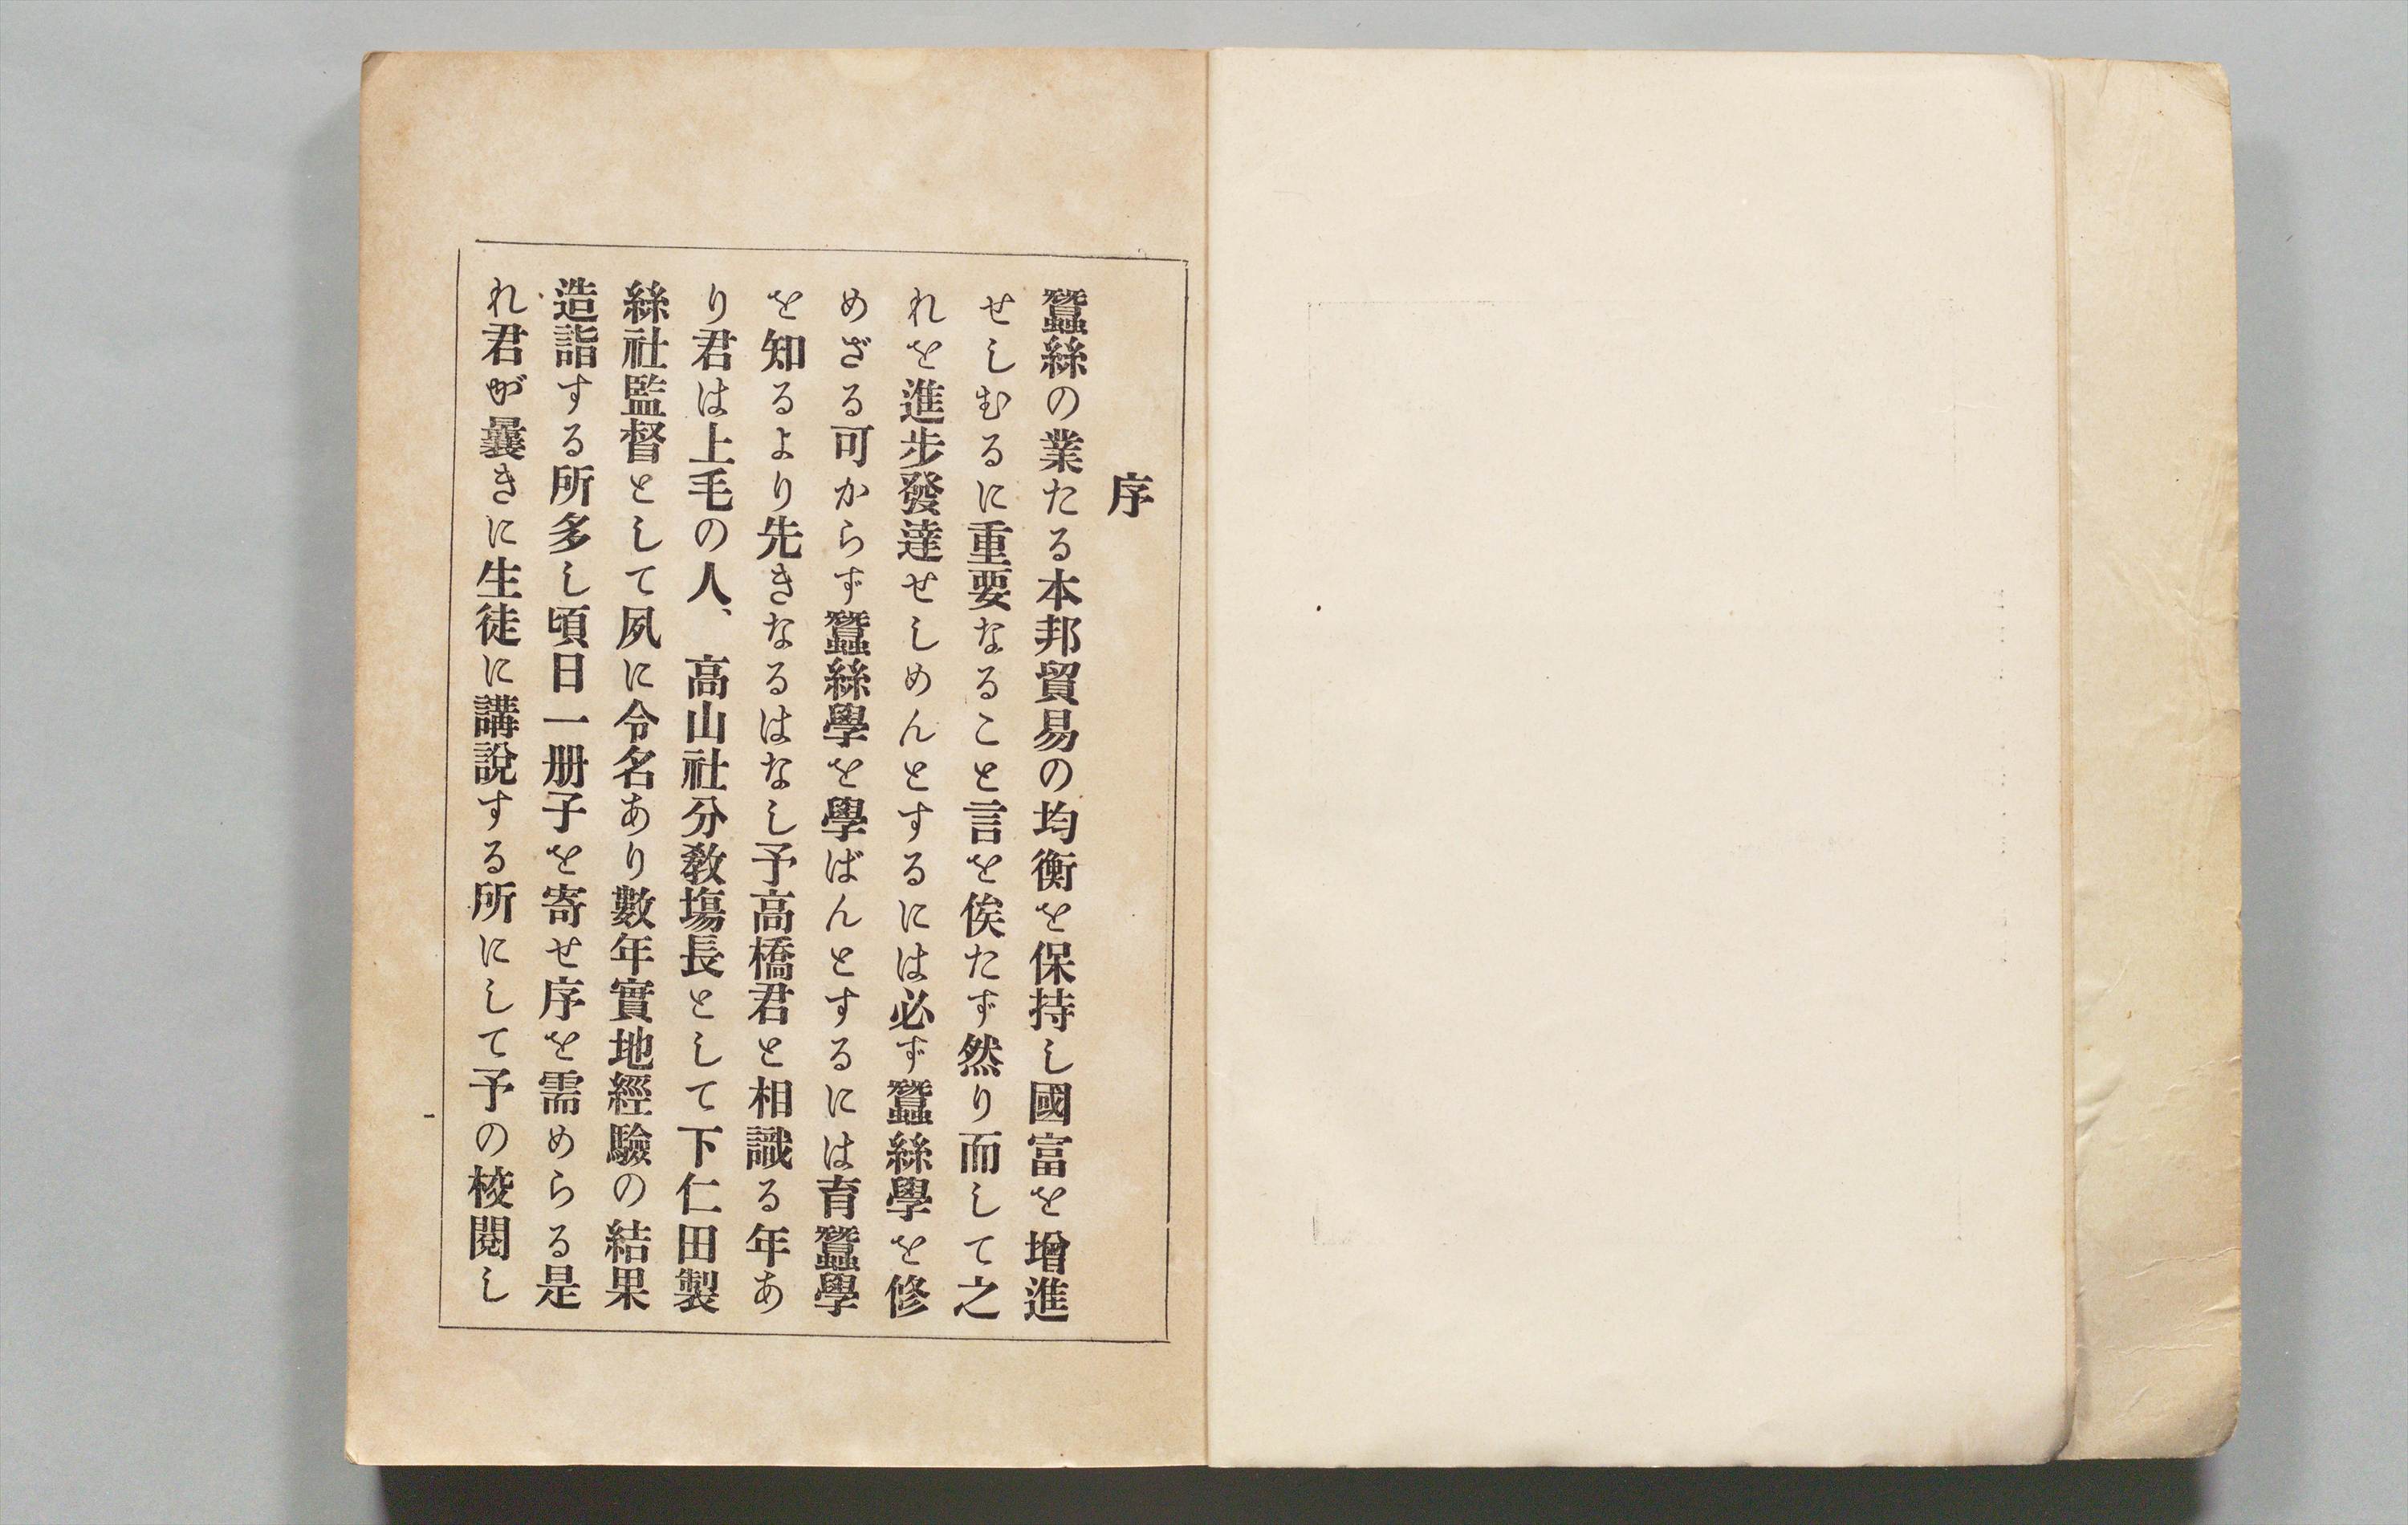 序
蠶絲の業たる本邦貿易の均衡を保持し國富を增進
せしむるに重要なること言を俟たず然り而して之
れを進步發達せしめんとするには必ず蠶絲學を修
めざる可からず蠶絲學を學ばんとするには育蠶學
を知るより先きなるはなし予高橋君と相識る年あ
り君は上毛の人、高山社分敎塲長として下仁田製
絲社監督として夙に令名あり數年實地經驗の結果
造詣する所多し頃日一册子を寄せ序を需めらる是
れ君が曩きに生徒に講說する所にして予の校閱し